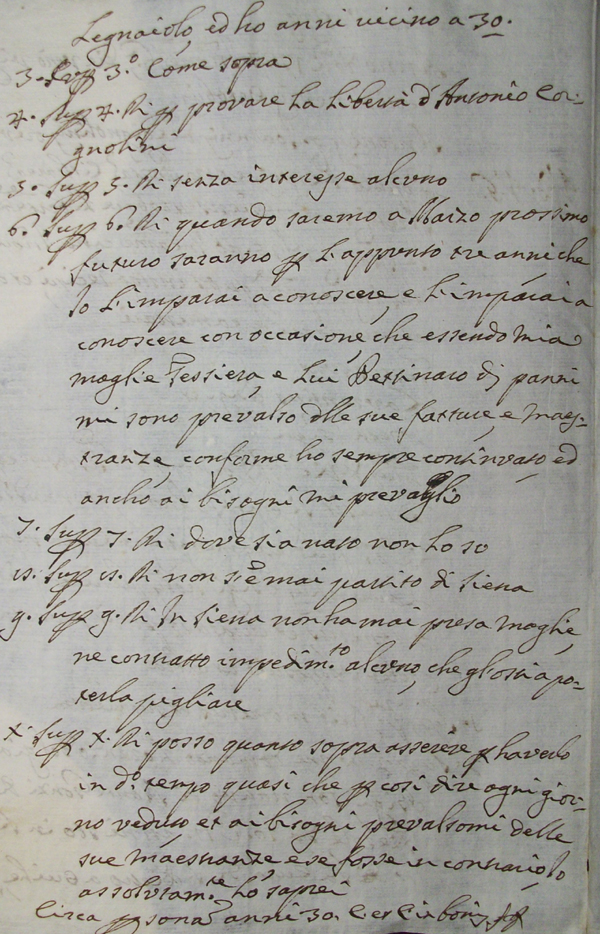 Legnaiolo, ed ho anni vicino a 30.
3. Sup. 3.º Come sopra
4. Sup. 4. Ri p provare la libertà d'Antonio Cor-
gnolini
5. Sup. 5. Ri senza interesse alcuno
6. Sup. 6. Ri quando saremo a Marzo prossimo
futuro saranno p l'appunto tre anni che
Io l'imparai a conoscere, e l'imparai a
conoscere con occasione, che essendo mia
moglie Tessiera, e lui Pettinaro di panni
mi sono prevalso dlle sue fatture, e maes-
tranze, conforme ho sempre continvato, ed
ancho ai bisogni mi prevaglio
7. Sup. 7. Ri dove sia nato non lo so
8. Sup. 8. Ri non s'è mai partito di Siena
9. Sup. 9. Ri In Siena non ha mai presa moglie,
ne contratto impedim.to alcuno, che gl'osti a po-
terla pigliare
X. Sup. X. Ri posso quanto sopra asserire p haverlo
in d.º tempo quasi che p così dire ogni gior-
no veduto et ai bisogni prevalsomi delle
sue maestranze e se fosse in contrario Io
assolutam.te lo saprei
Circa psona anni 30.